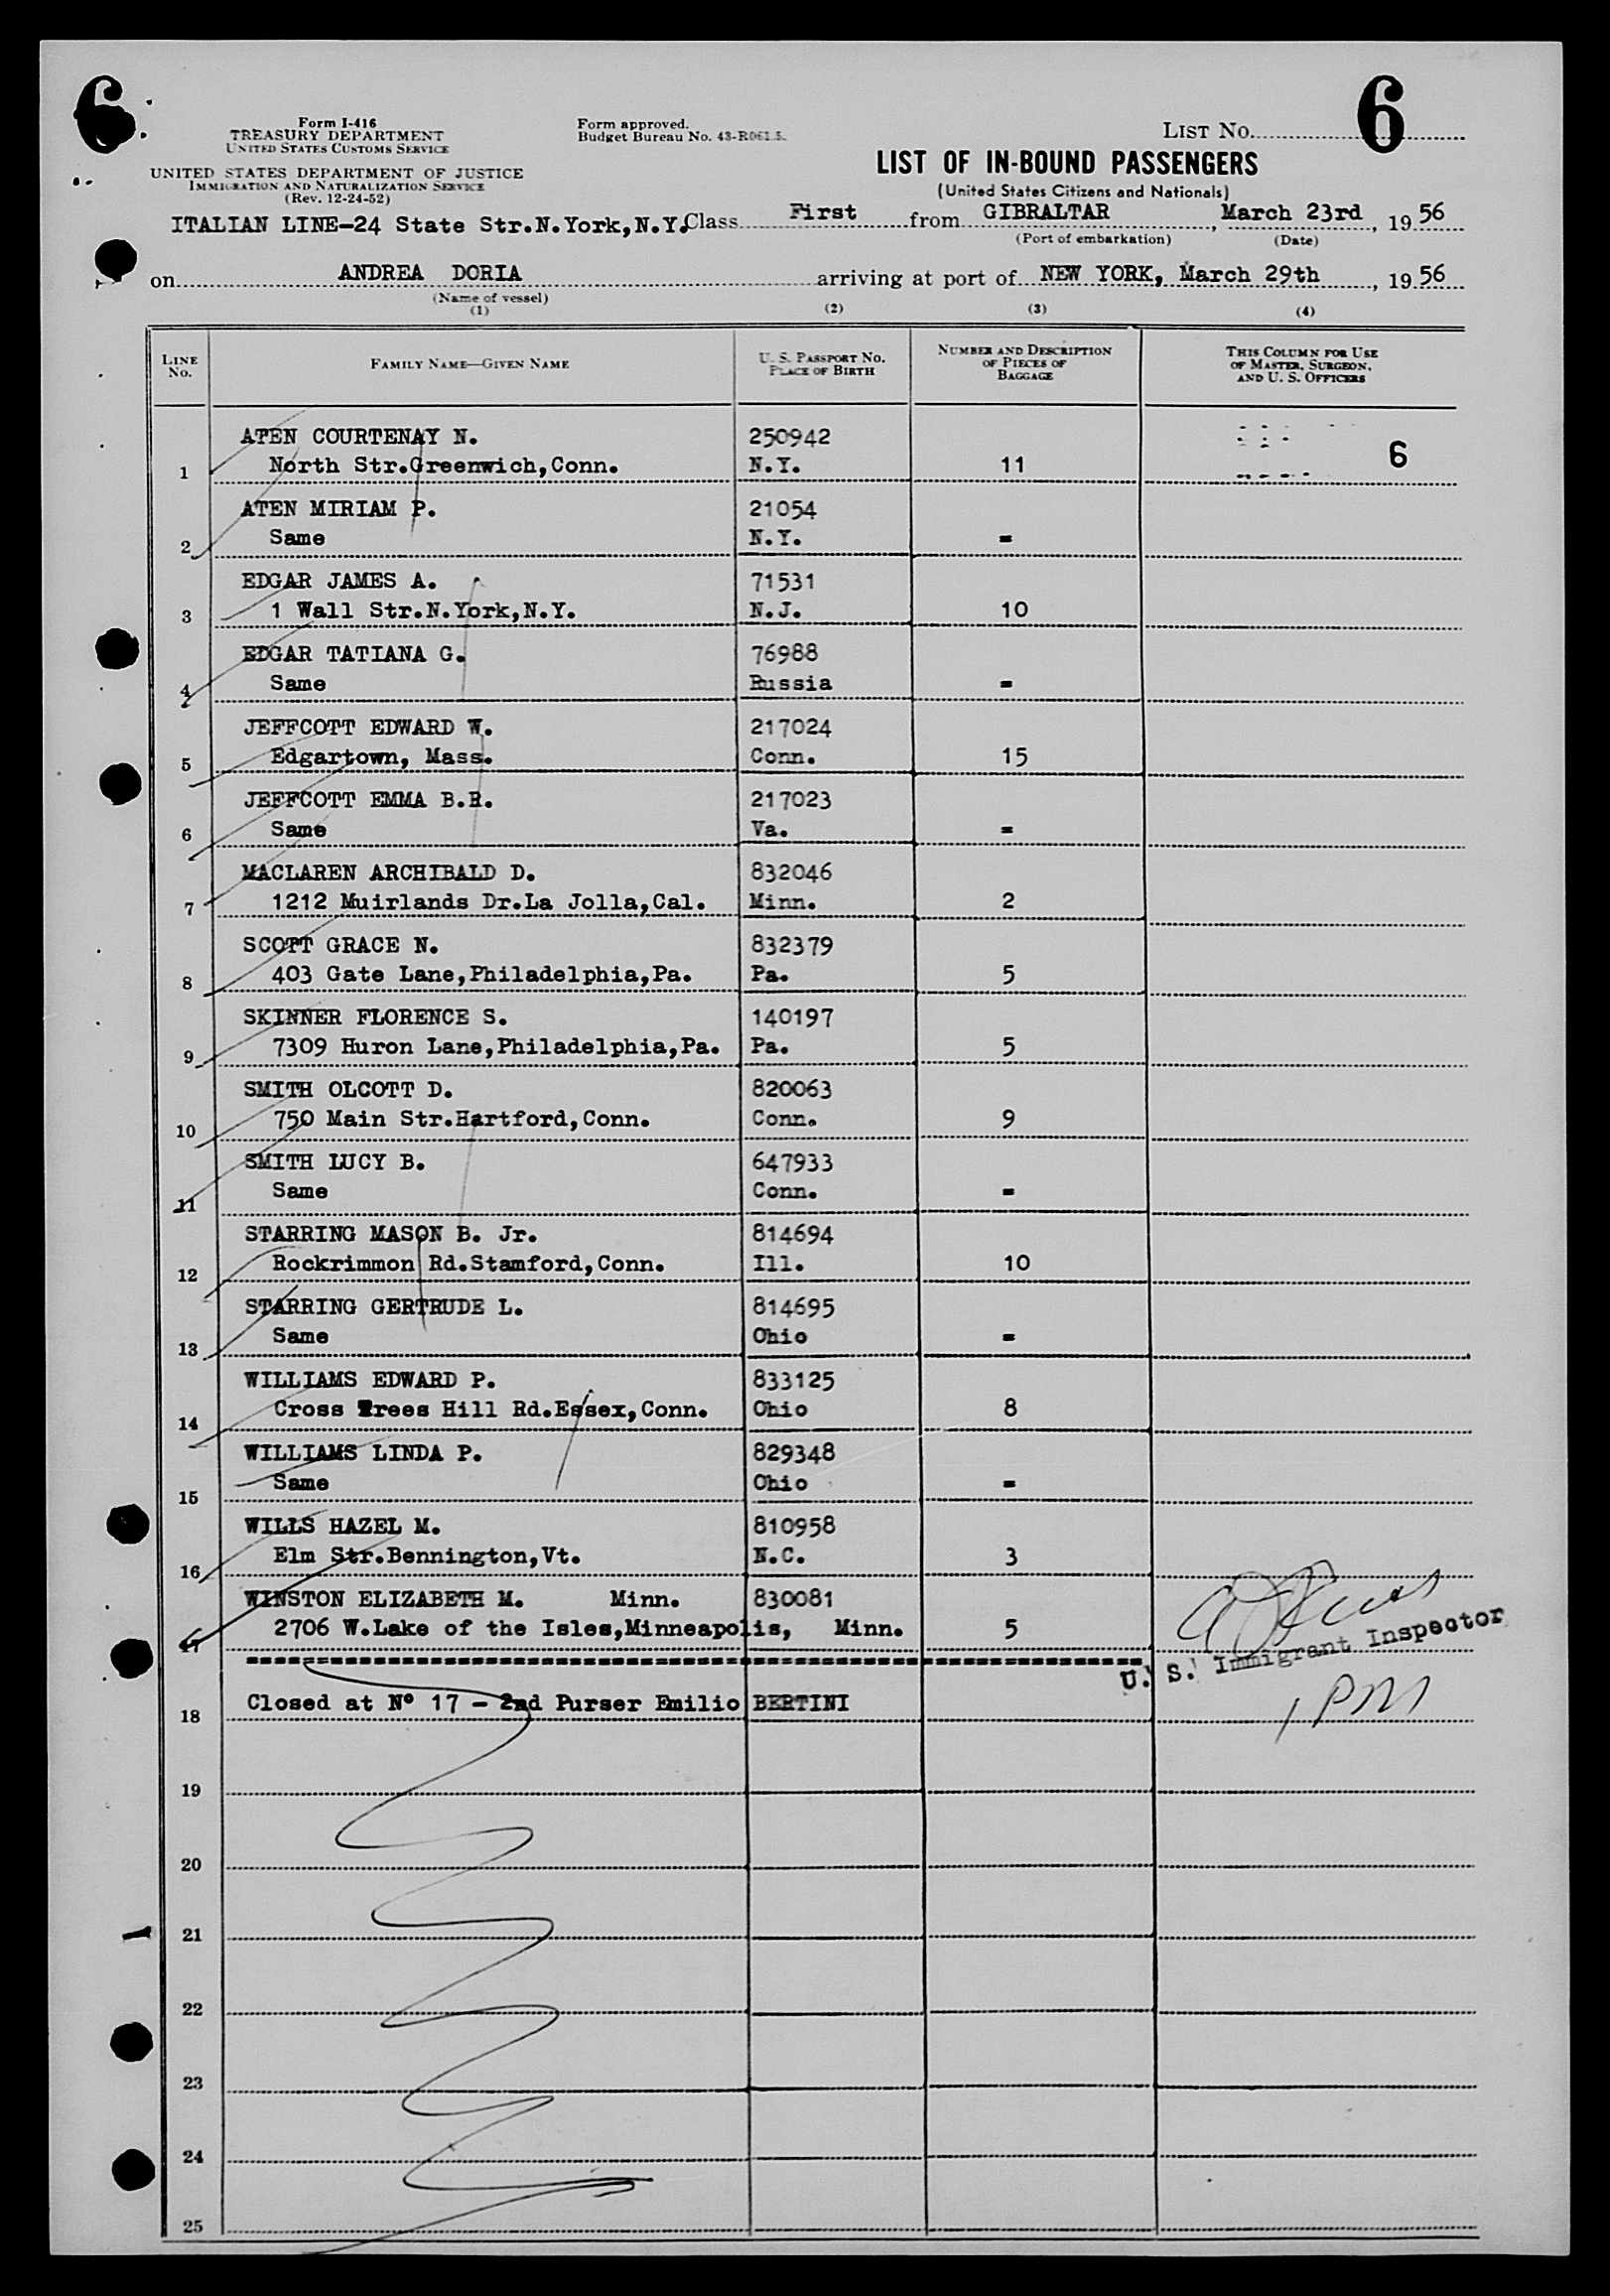 6
6
Form I-416
TREASURY DEPARTMENT
UNITED STATES CUSTOMS SERVICE
UNITED STATES DEPARTMENT OF JUSTICE
IMMIGRATION AND NATURALIZATION SERVICE
(Rev. 12-24-52)
Form approved.
Budget Bureau No. 43-R061.5.
LIST No.
LIST OF IN-BOUND PASSENGERS
(United States Citizens and Nationals)
ITALIAN LINE-24 State Str.N.York,N.Y. Class First from GIBRALTAR, March 23rd, 1956
(Port of embarkation) (Date)
on ANDREA DORIA arriving at port of NEW YORK, March 29th, 1956
(Name of vessel)
(1) (2) (3) (4)
LINE No. FAMILY NAME—GIVEN NAME U. S. PASSPORT No. PLACE OF BIRTH NUMBER AND DESCRIPTION OF PIECES OF BAGGAGE THIS COLUMN FOR USE OF MASTER, SURGEON, AND U. S. OFFICERS
ATEN COURTENAY N. 250942
1 North Str.Greenwich,Conn. N.Y. 11 6
ATEN MIRIAM P. 21054
2 Same N.Y. =
EDGAR JAMES A. 71531
3 1 Wall Str.N.York,N.Y. N.J. 10
EDGAR TATIANA G. 76988
4 Same Russia =
JEFFCOTT EDWARD W. 217024
5 Edgartown, Mass. Conn. 15
JEFFCOTT EMMA B.R. 217023
6 Same Va. =
MACLAREN ARCHIBALD D. 832046
7 1212 Muirlands Dr.La Jolla,Cal. Minn. 2
SCOTT GRACE N. 832379
8 403 Gate Lane,Philadelphia,Pa. Pa. 5
SKINNER FLORENCE S. 140197
9 7309 Huron Lane,Philadelphia,Pa. Pa. 5
SMITH OLCOTT D. 820063
10 750 Main Str.Hartford,Conn. Conn. 9
SMITH LUCY B. 647933
11 Same Conn. =
STARRING MASON B. Jr. 814694
12 Rockrimmon Rd.Stamford,Conn. Ill. 10
STARRING GERTRUDE L. 814695
13 Same Ohio =
WILLIAMS EDWARD P. 833125
14 Cross Trees Hill Rd.Essex,Conn. Ohio 8
WILLIAMS LINDA P. 829348
15 Same Ohio =
WILLS HAZEL M. 810958
16 Elm Str.Bennington,Vt. N.C. 3
WINSTON ELIZABETH M. Minn. 830081
17 2706 W.Lake of the Isles,Minneapolis, Minn. 5
U. S. Immigrant Inspector
18 Closed at Nº 17 - 2nd Purser Emilio BERTINI
1 PM
19
20
21
22
23
24
25